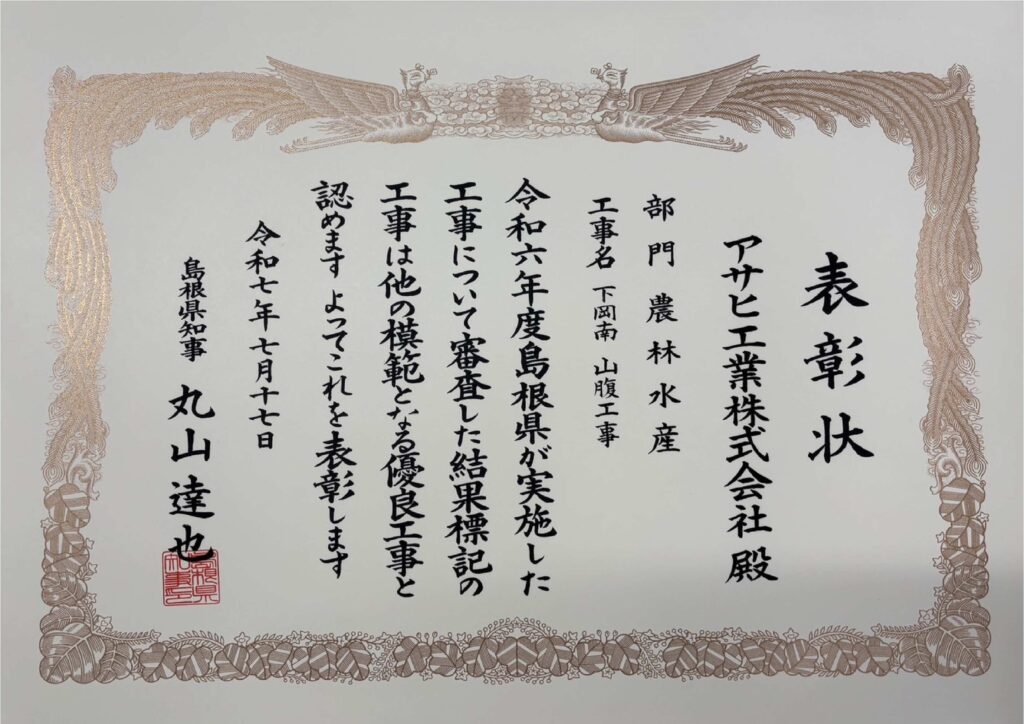 表彰状
アサヒ工業株式会社 殿
部門 農林水産
工事名 下岡南 山腹工事
令和六年度島根県が実施した
工事について審査した結果標記の
工事は他の模範となる優良工事と
認めます よってこれを表彰します
令和七年七月十七日
島根県知事 丸山達也
島根県知事之印